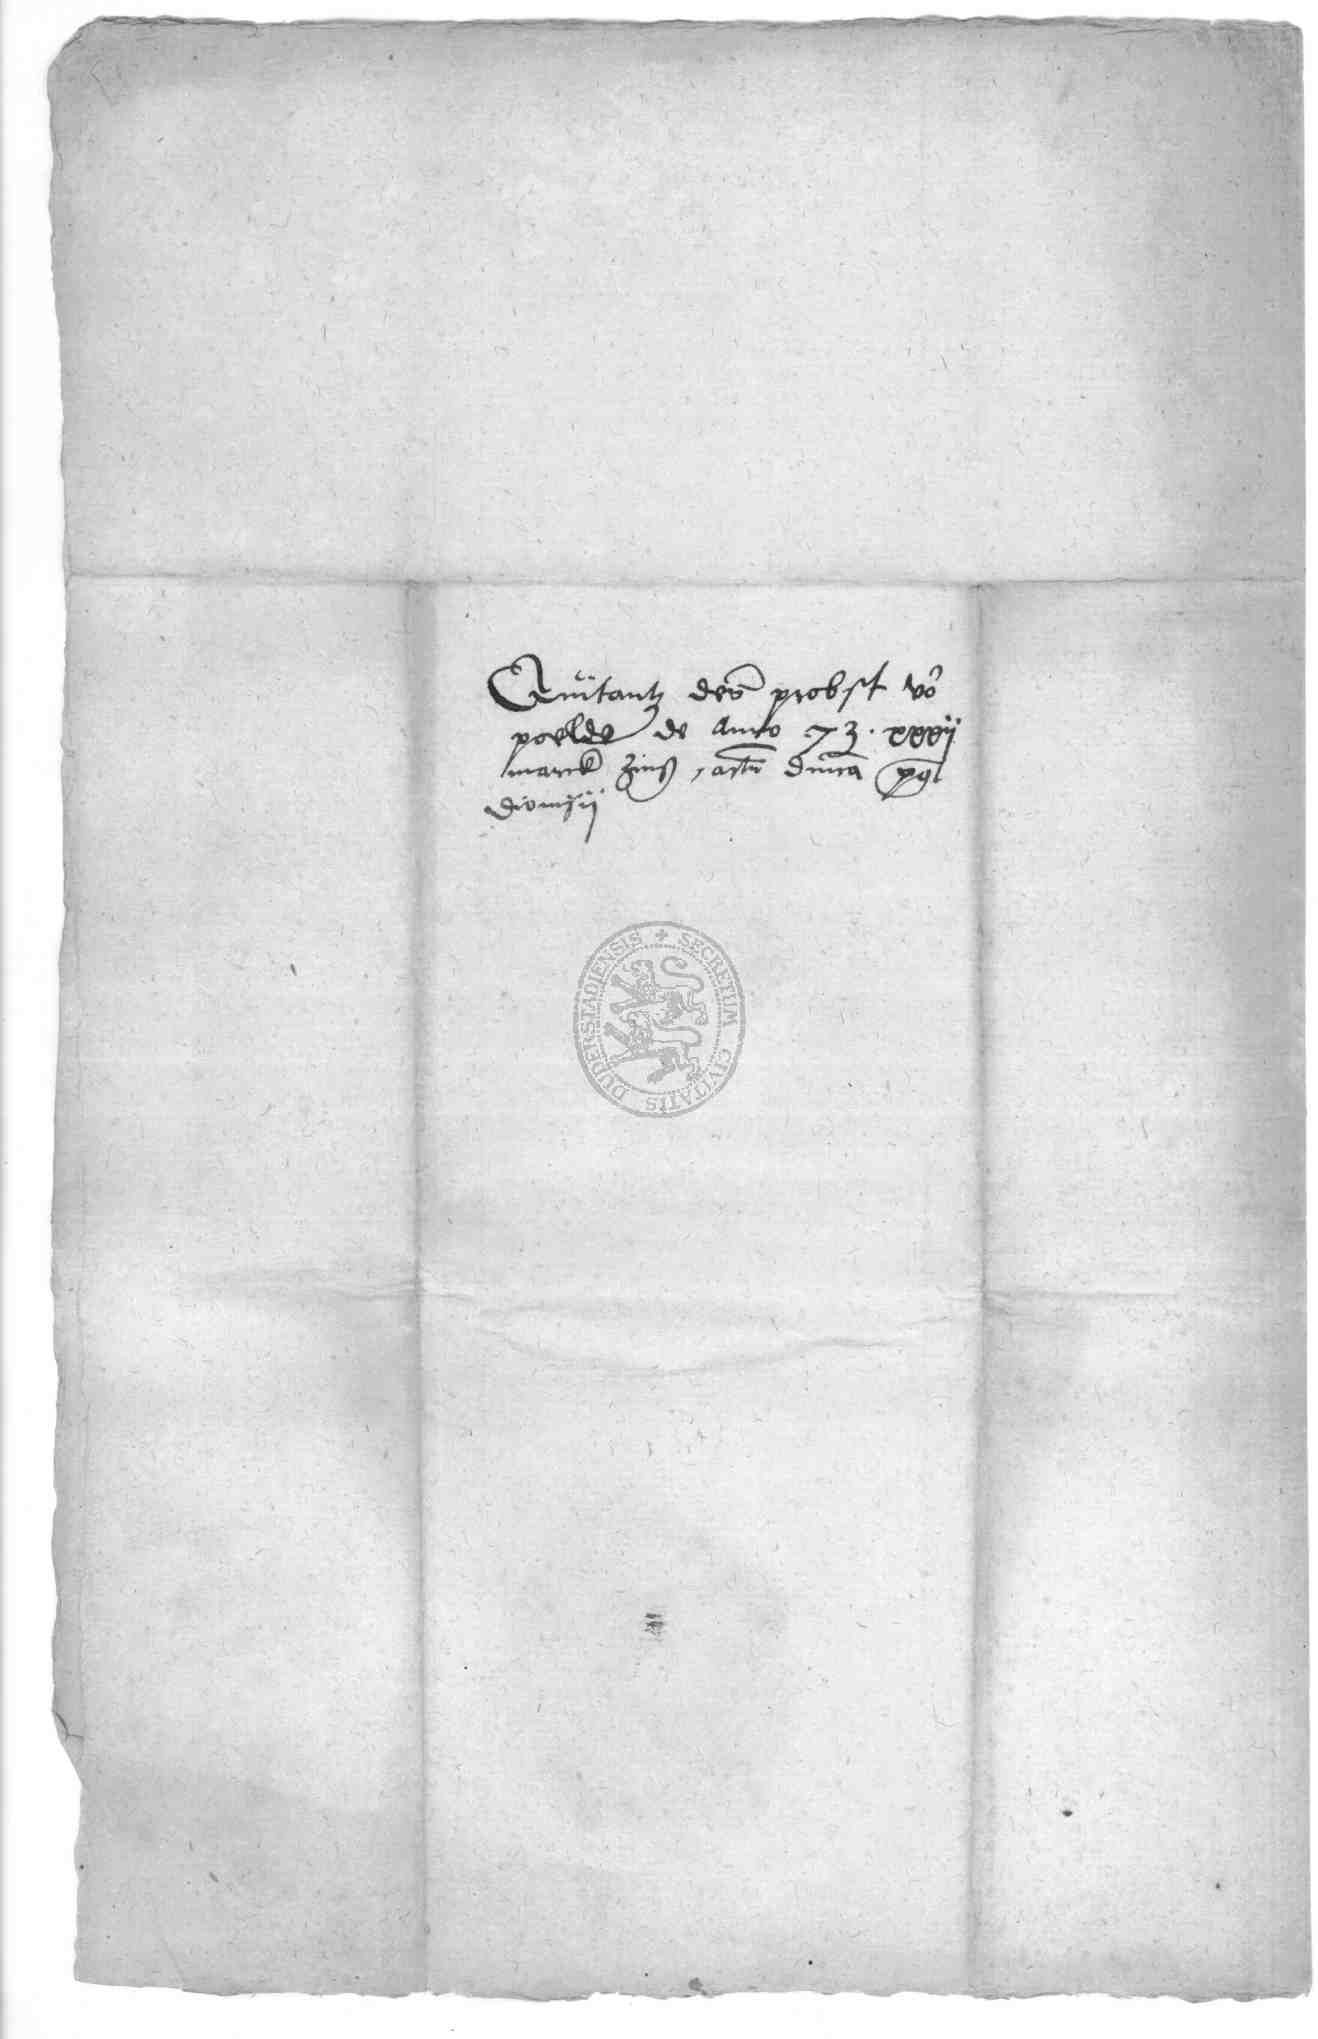 Quitantz des probst vō
poelde de Anno 73 . xxxij
marck zinß , actū dnica pꝰ
dionisij
SECRETUM CIVITATIS DUDERSTADIENSIS